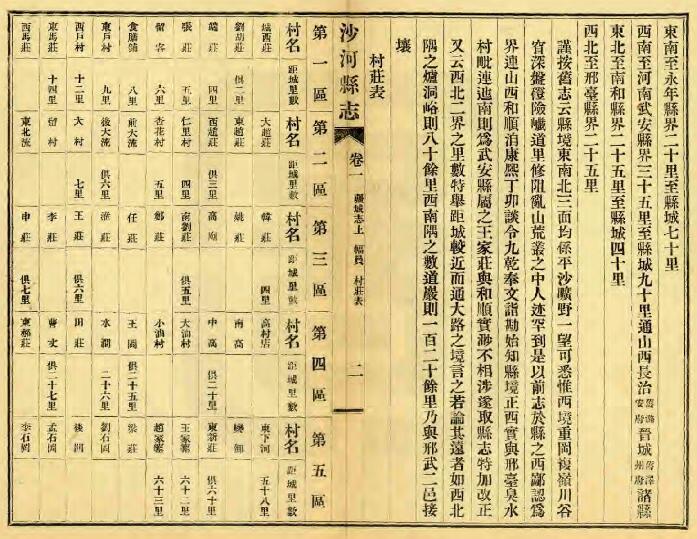 東南至永年縣界二十里至縣城七十里
西南至河南武安縣界三十五里至縣城九十里通山西長治晉城諸縣
東北至南和縣界二十五里至縣城四十里
西北至邢臺縣界二十五里
謹按舊志云縣境東南北三面均係平沙曠野一望可悉惟西境重岡複嶺川谷
窅深盤磴險巇道里修阻亂山荒叢之中人迹罕到是以前志於縣之西鄙認爲
界連山西和順洎康熙丁卯談令九乾奉文詣勘始知縣境正西實與邢臺臬水
村毗連迤南則爲武安縣屬之王家莊與和順實渺不相涉遂取縣志特加改正
又云西北二界之里數特舉距城較近而通大路之境言之若論其遠者如西北
隅之爐洞峪則八十餘里西南隅之數道巖則一百二十餘里乃與邢武二邑接
壤
村莊表
沙河縣志
卷一
疆域志上 幅員 村莊表
二
第一區 第二區 第三區 第四區 第五區
村名 距城里數 村名 距城里數 村名 距城里數 村名 距城里數 村名 距城里數
城西莊 大趙莊 韓莊 四里 高村店 東下河 五十八里
劉莊 俱二里 東趙莊 姚莊 南高
端莊 四里 西趙莊 俱三里 高廟 中高 俱二十里 東新莊 俱六十里
張莊 五里 仁里村 四里 南劉莊 俱五里 大油村 王家莊 六十二里
留客 六里 杏花村 五里 鄭莊 小油村 趙家莊 六十三里
食膳鋪 八里 前大流 任莊 王岡 俱二十五里 梁莊
東戶村 九里 後大流 俱六里 潘莊 水澗 二十六里 劉石岡
西戶村 十二里 大村 七里 王莊 俱六里 田莊 後澗
東馬莊 十四里 留村 李莊 曹莊 俱二十七里 孟石岡
西馬莊 東北流 申莊 俱七里 東郝莊 李石岡